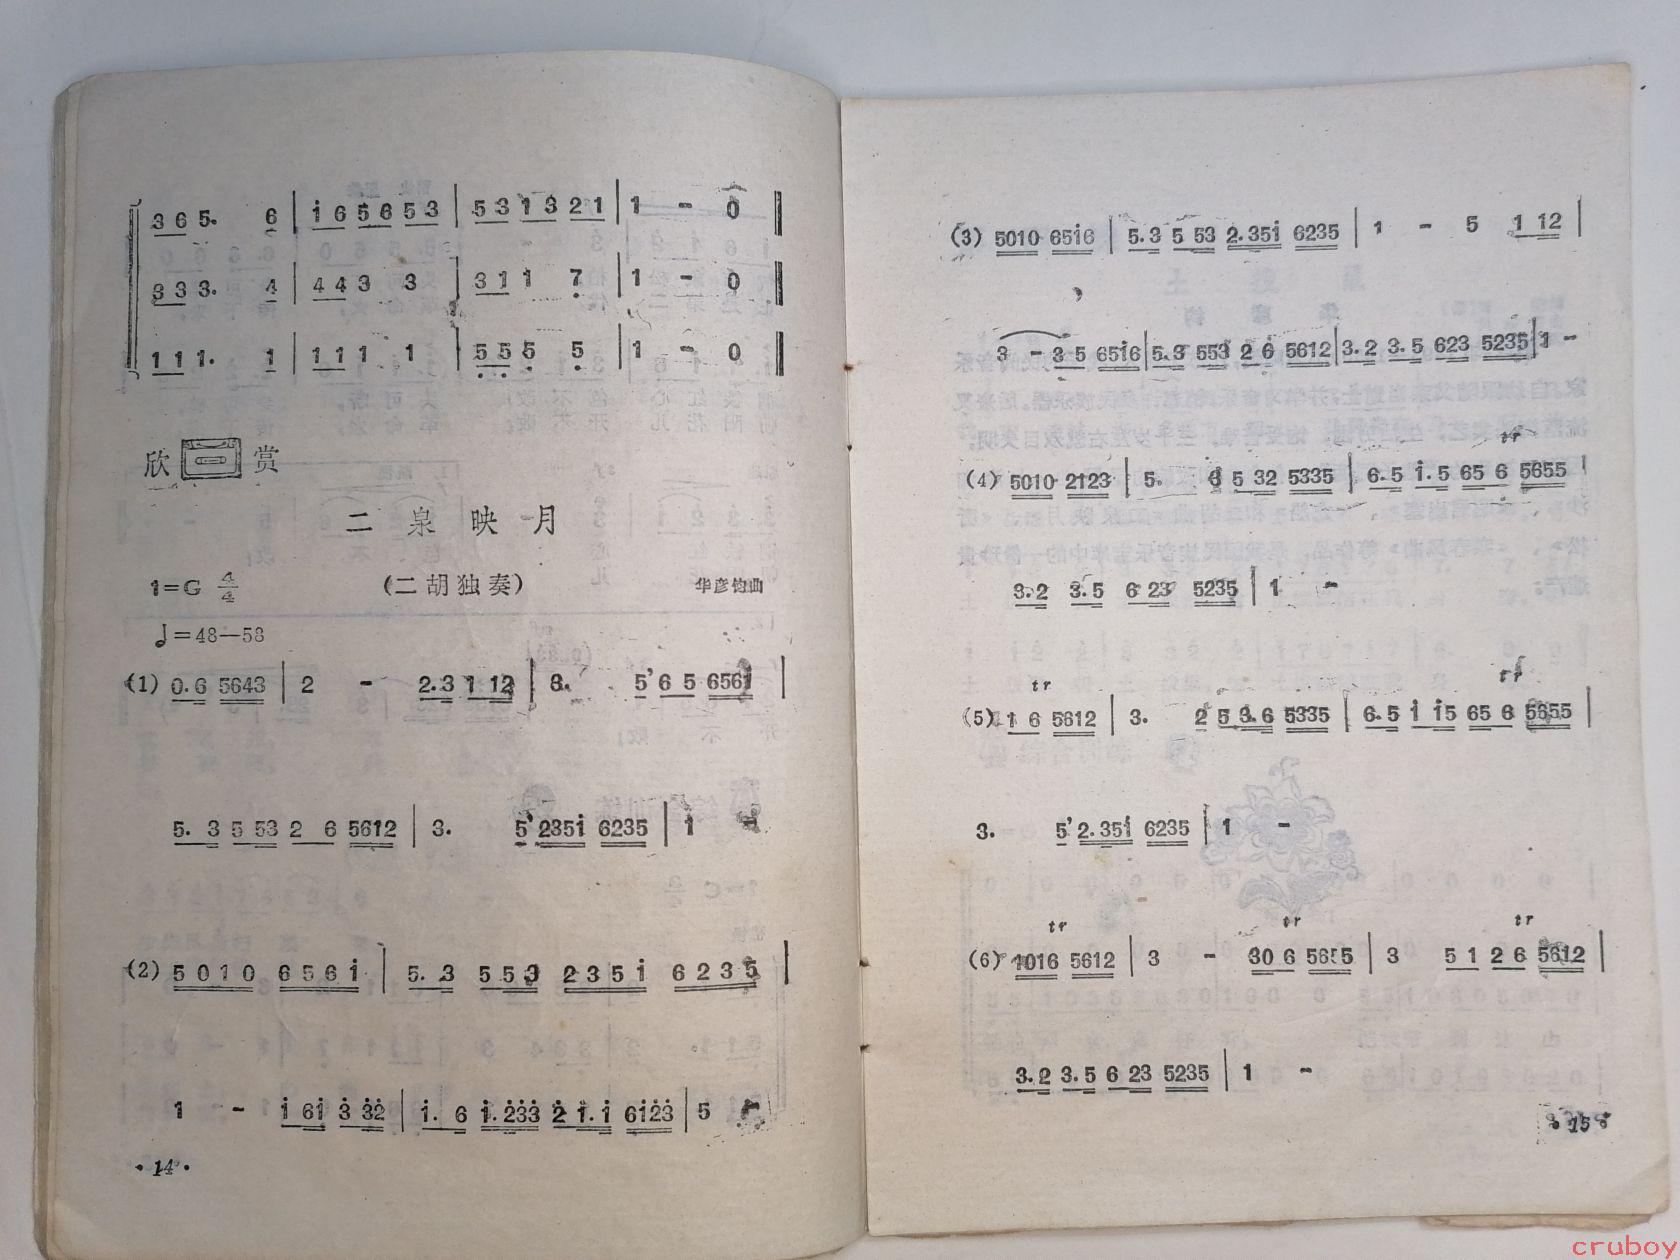 3 6 5. 6 | i 6 5 6 5 3 | 5 3 1 3 2 1 | 1 - 0 ‖
3 3 3. 4 | 4 4 3 3 | 3 1 1 7 | 1 - 0 ‖
1 1 1. 1 | 1 1 1 1 | 5 5 5 5 | 1 - 0 ‖
欣赏
二泉映月
1=G 4/4 (二胡独奏) 华彦钧曲
♩=48—58
(1) 0.6 5643 | 2 - 2.3 1 12 | 3. 5' 6 5 6561 |
5. 3 5 53 2 6 5612 | 3. 5' 235i 6235 | 1
(2) 5010 656i | 5. 3 553 235i 6235 |
1 - i 6i 3 32 | i. 6 i.233 2 i.i 6i23 | 5
·14·
(3) 5010 656i | 5.3 5 53 2.35i 6235 | 1 - 5 1 12 |
3 - 3 5 656i | 5.3 553 2 6 5612 | 3.2 3.5 623 5235 | 1 -
tr
(4) 5010 2123 | 5. 6 5 32 5335 | 6.5 i.5 65 6 5655 |
3.2 3.5 6 23 5235 | 1 -
tr tr
(5) 1 6 5612 | 3. 2 5 3.6 5335 | 6.5 i i5 65 6 5655 |
3. 5' 2.35i 6235 | 1 -
tr tr tr
(6) 1016 5612 | 3 - 30 6 5655 | 3 5 1 2 6 5612 |
3.2 3.5 6 23 5235 | 1 -
·15·
cruboy